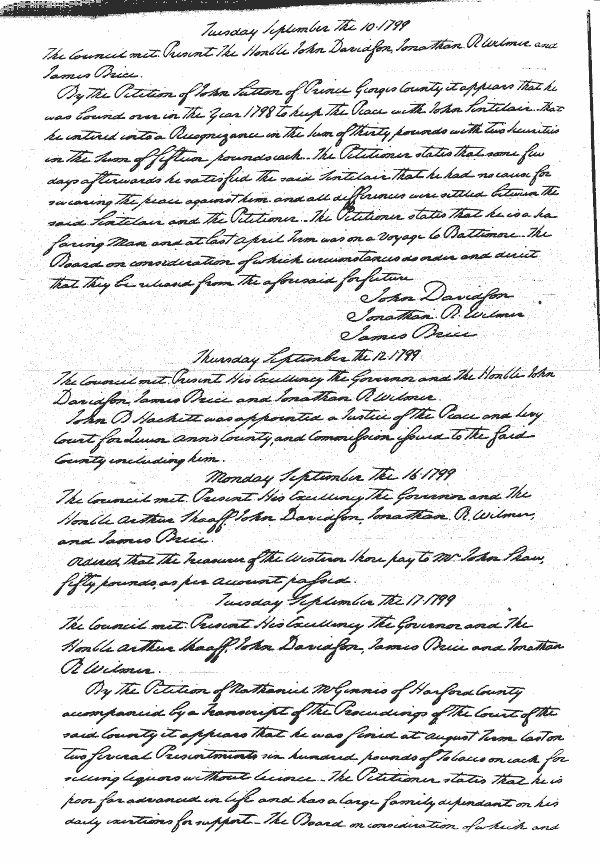 Tuesday September the 10. 1799
The Council met. Present The Honble John Davidson, Jonathan R. Wilmer and
James Brice.
By the Petition of John Sutton of Prince Georges County it appears that he
was bound over in the Year 1798 to keep the Peace with John Sintclair that
he entered into a Recognizance in the sum of thirty pounds with two securities
in the sum of fifteen pounds each. The Petitioner states that some few
days afterwards he satisfied the said Sintclair that he had no cause for
swearing the peace against him and all differences were settled between the
said Sintclair and the Petitioner. The Petitioner states that he is a sea
faring Man and at last April Term was on a Voyage to Baltimore. The
Board on consideration of which circumstances do order and direct
that they be released from the aforesaid forfeiture
John Davidson
Jonathan R. Wilmer
James Brice
Thursday September the 12. 1799
The Council met. Present His Excellency the Governor and The Honble John
Davidson, James Brice and Jonathan R. Wilmer.
John B Hackett was appointed a Justice of the Peace and Levy
Court for Queen Anns County, and Commission issued to the said
County including him.
Monday September the 16. 1799
The Council met. Present His Excellency The Governor and The
Honble Arthur Shaaff, John Davidson, Jonathan R. Wilmer,
and James Brice.
Ordered, that the Treasurer of the Western Shore pay to Mr John Shaw,
fifty pounds, as per account passed.
Tuesday September the 17. 1799
The Council met. Present His Excellency The Governor and The
Honble Arthur Shaaff, John Davidson, James Brice and Jonathan
R Wilmer.
By the Petition of Nathaniel McGinnis of Harford County
accompanied by a Transcript of the Proceedings of the Court of the
said County it appears that he was fined at August Term last on
two several Presentments six hundred pounds of Tobacco on each for
selling liquors without licence. The Petitioner states that he is
poor far advanced in life and has a large family dependant on his
daily exertions for support. The Board on consideration of which and